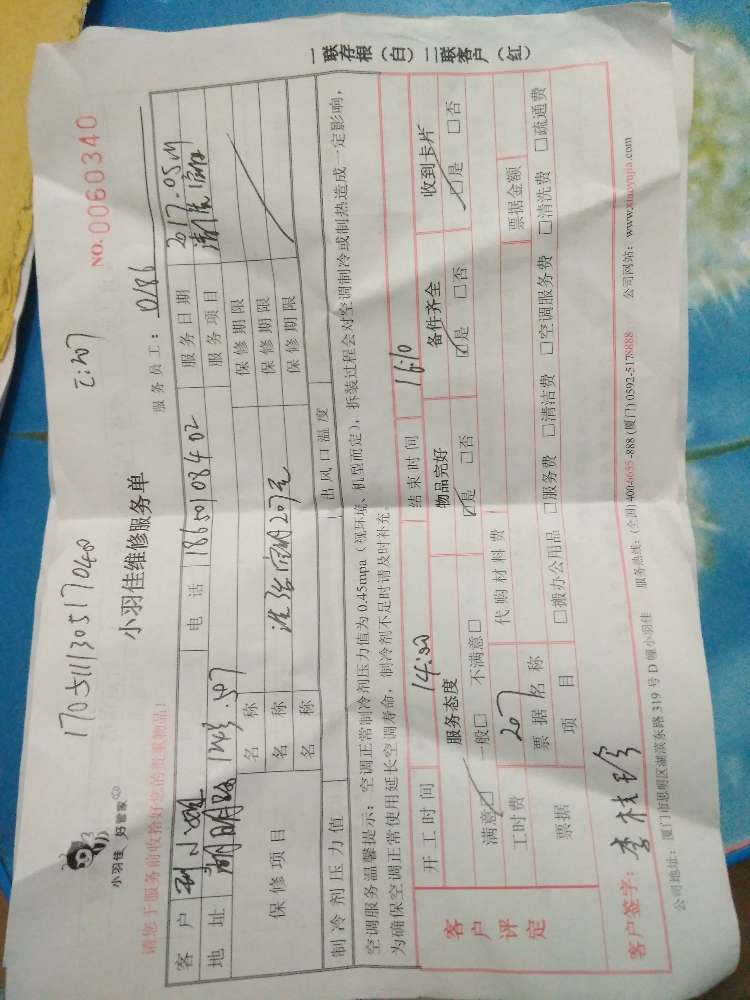 170511130517040
小羽佳 好管家
小羽佳维修服务单
NO.0060340
请您于服务前收拾好您的贵重物品!
服务员工:
客户 电话 18650108402 服务日期 2017.05.11
地址 湖明路 143.507 服务项目 清洗空调
保修项目 名称 保修期限
名称 洗张空调207元 保修期限
名称 保修期限
制冷剂压力值 出风口温度
空调服务温馨提示:空调正常制冷剂压力值为 0.45mpa(视环境、机型而定),拆装过程会对空调制冷或制热造成一定影响,
为确保空调正常使用延长空调寿命,制冷剂不足时请及时补充。
客户评定
开工时间 14:00 结束时间 16:10
服务态度 物品完好 备件齐全 收到卡片
满意□ 一般□ 不满意□ □是 □否 □是 □否 □是 □否
工时费 207 代购材料费 票据金额
票据 票据名称
项目 □搬办公用品 □服务费 □清洁费 □空调服务费 □清洗费 □疏通费
客户签字:李桂珍
公司地址:厦门市思明区湖滨东路 319 号 D 幢小羽佳 服务热线:(全国)4006655-888 (厦门)0592-5178888 公司网站:www.xiaoyujia.com
一联存根(白)二联客户(红)